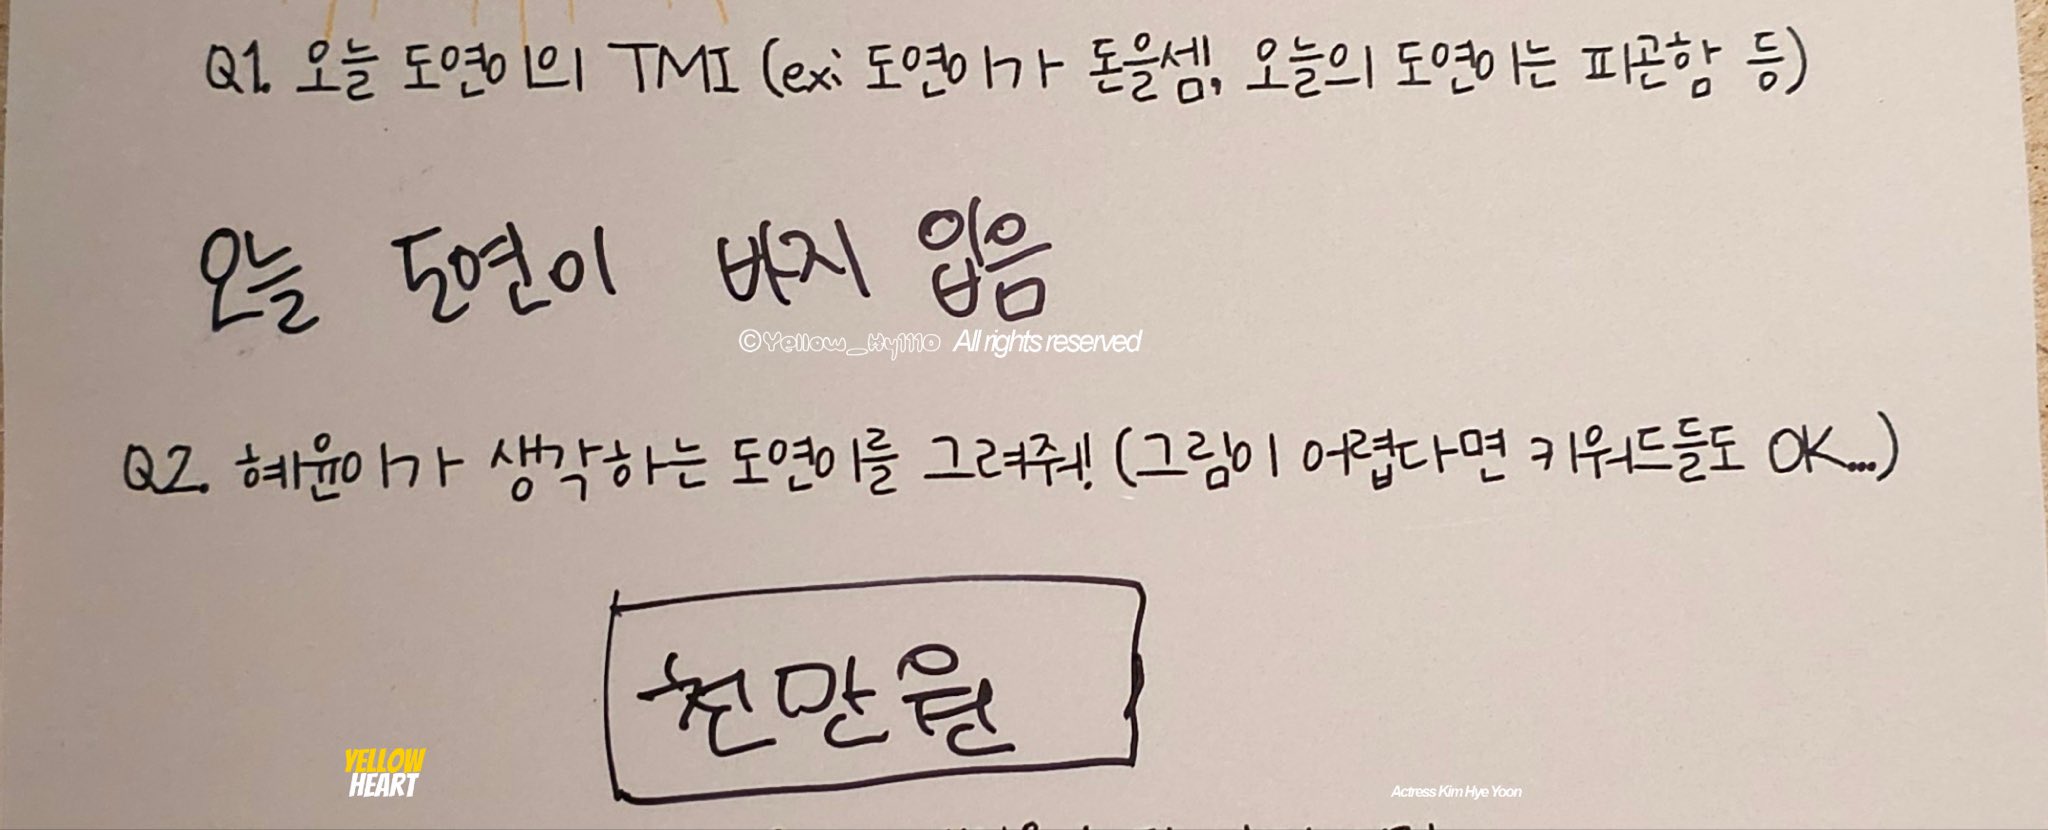 Q1. 오늘 도연이의 TMI (ex: 도연이가 돈을셈, 오늘의 도연이는 피곤함 등)
오늘 도연이 바지 있음
©Yellow_Hy1110 All rights reserved
Q2. 혜윤이가 생각하는 도연이를 그려줘! (그림이 어렵다면 키워드들도 OK...)
천만원
YELLOW
HEART
Actress Kim Hye Yoon